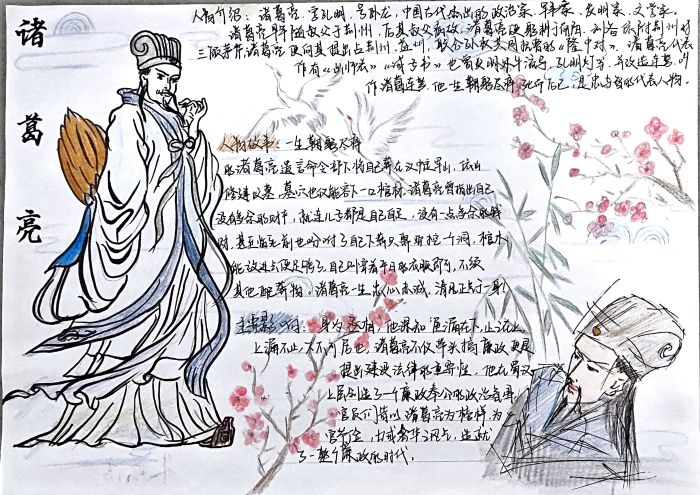 诸
葛
亮
人物介绍：诸葛亮，字孔明，号卧龙，中国古代杰出的政治家、军事家、发明家、文学家。
诸葛亮早年随叔父于荆州，后其叔父病故，诸葛亮便躬耕于南阳，刘备依附荆州时
三顾茅庐，诸葛亮便向其提出占荆州、益州，联合孙权共同抗曹的《隆中对》。诸葛亮代表
作有《出师表》《诫子书》也曾发明木牛流马、孔明灯等，并改造连弩，叫
作诸葛连弩。他一生鞠躬尽瘁，死而后已，是忠与智的代表人物。
人物故事：一生鞠躬尽瘁
诸葛亮遗言命令部下将自己葬在汉中定军山，依山
修建坟墓，墓穴也仅能容下一口棺材。诸葛亮曾指出自己
没有多余的财产，就连儿子都是自给自足，没有一点多余的钱
财，甚至临死前也吩咐了自己下葬只需要挖一个洞，棺木
能放进去便足够了，自己则穿着平日的衣服即可，不须
其他配葬物，诸葛亮一生忠心赤诚，清风正气于一身！
主要影响：身为丞相，他深知“屋漏在下，止之在上，
上漏不止，下不可居也”，诸葛亮不仅带头搞廉政，更是
提出建设法律的重要性，他在蜀汉
上层创造了一个廉政奉公的政治氛围，
官员们皆以诸葛亮为榜样，为
官
了一整个廉政的时代。